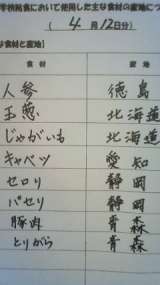 学校給食において使用した主な食材の産地につ
( 4月12日分)
な食材と産地】
食材 産地
人参 徳島
玉葱 北海道
じゃがいも 北海道
キャベツ 愛知
セロリ 静岡
パセリ 静岡
豚肉 青森
とりがら 青森